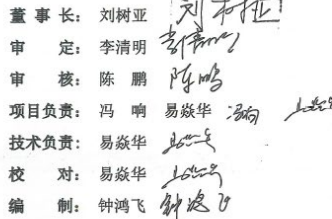 董 事 长： 刘树亚 刘树亚
审 定： 李清明
审 核： 陈 鹏 陈鹏
项目负责： 冯 响 易焱华 冯响
技术负责： 易焱华
校 对： 易焱华
编 制： 钟鸿飞 钟鸿飞